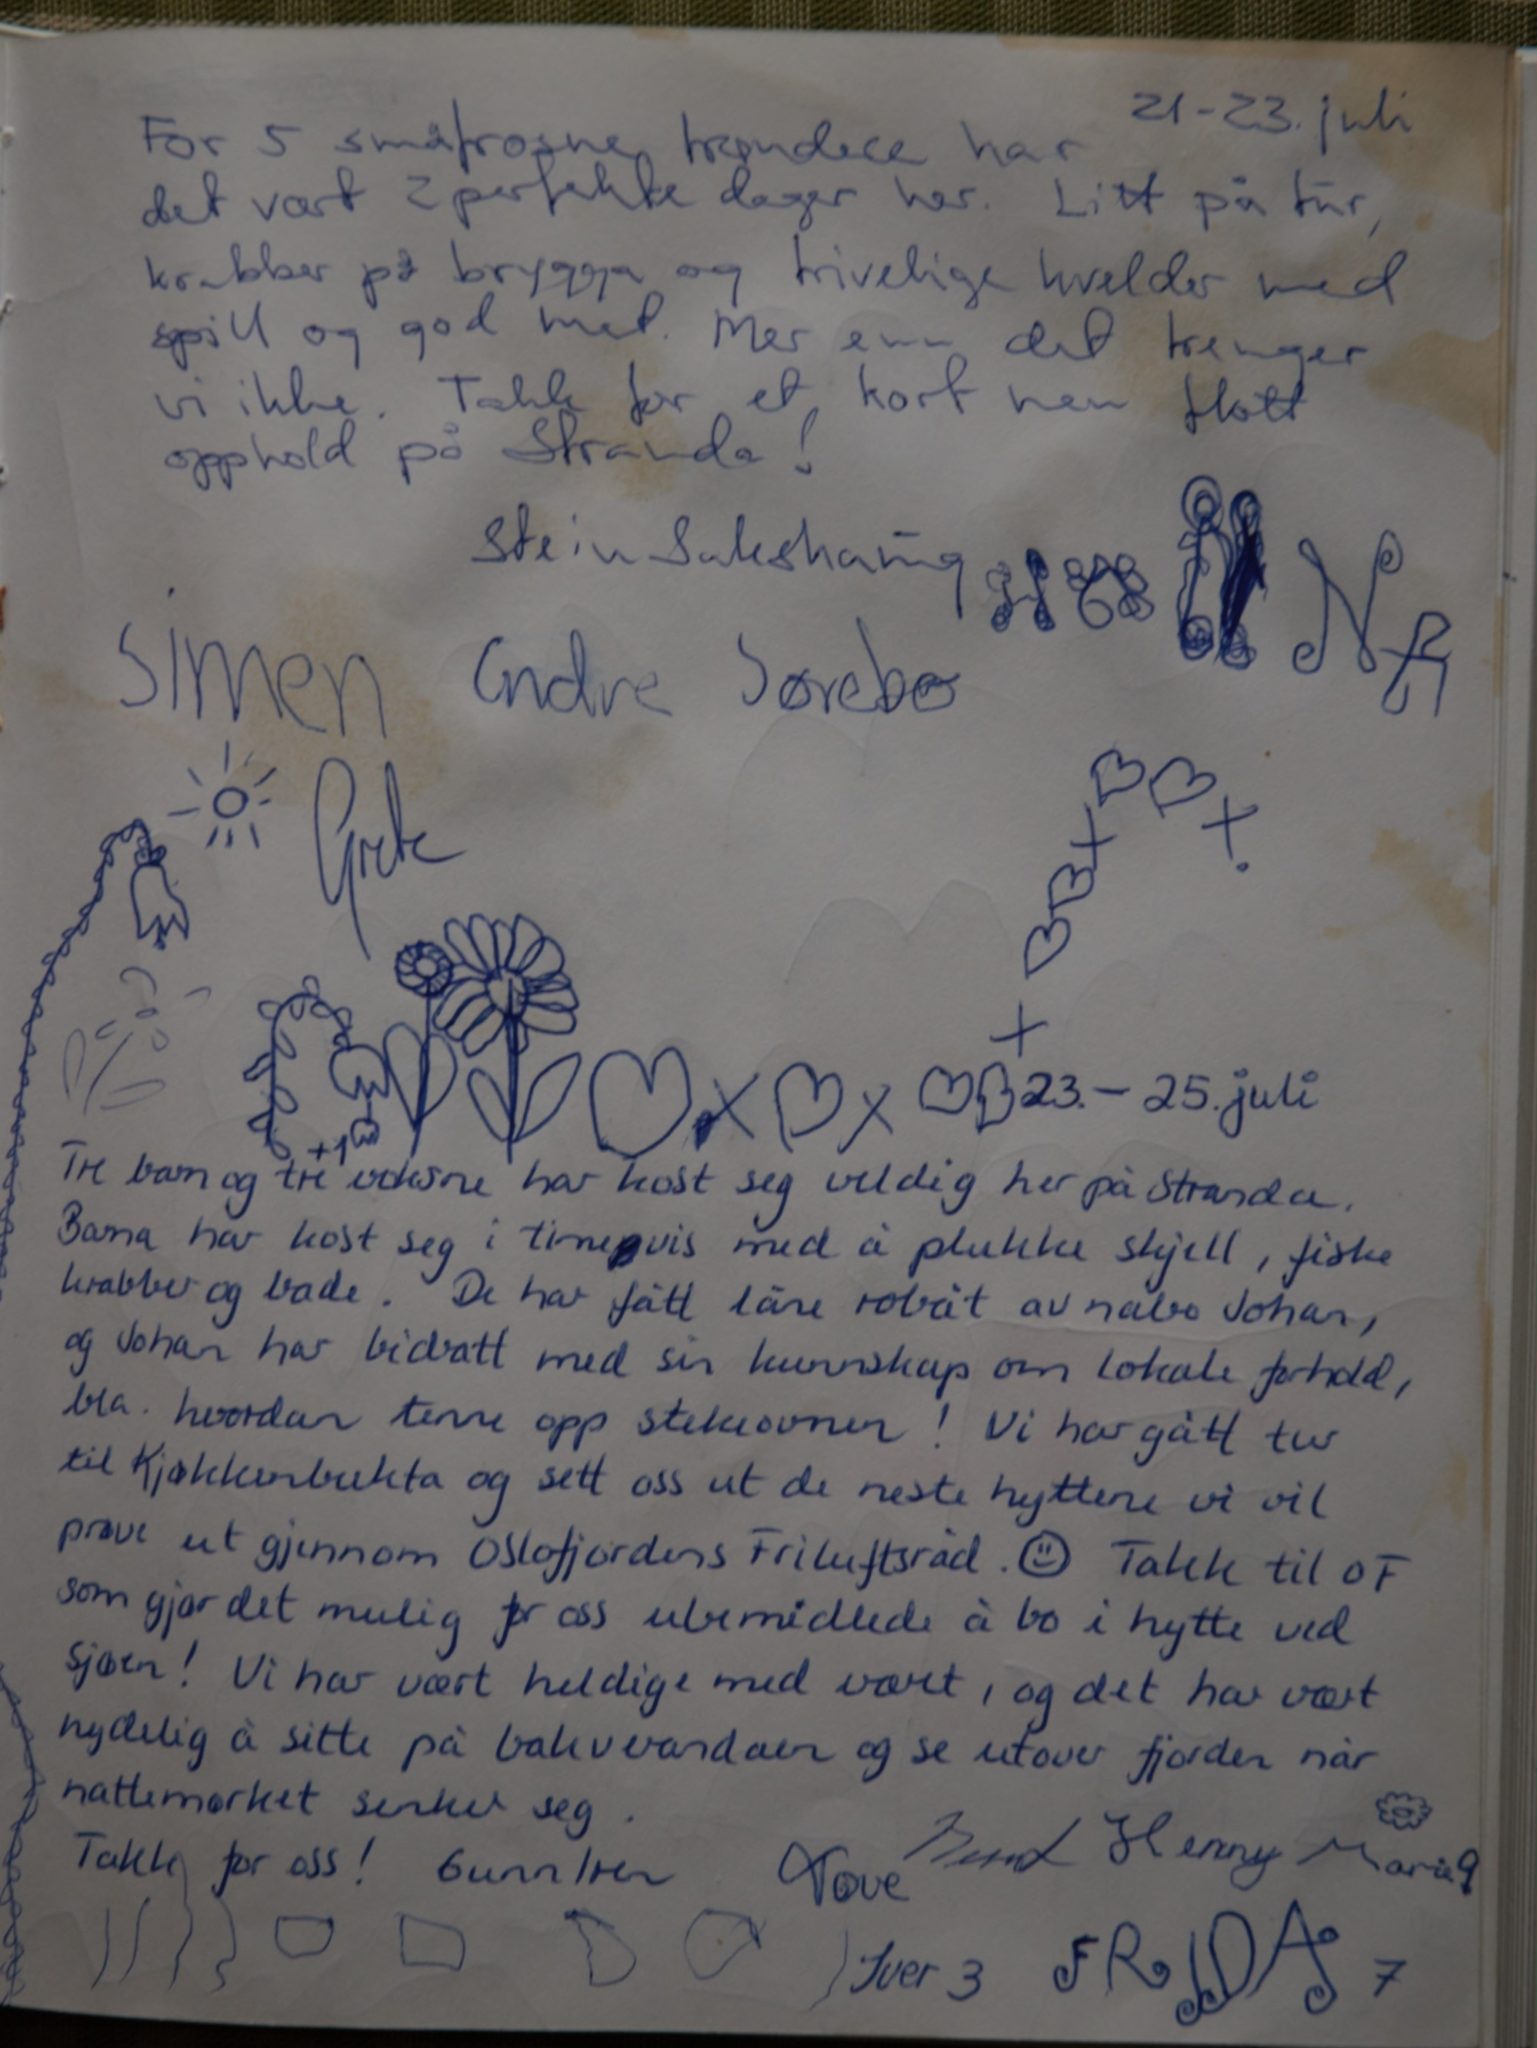 21-23. juli
For 5 småfrosne trøndere har
det vært 2 perfekte dager her. Litt på tur,
krabber på brygga og trivelige kvelder med
spill og god mat. Mer enn det trenger
vi ikke. Takk for et kort men flott
opphold på Stranda!
Stein
Simen Endre Sørebø
Grete
23. – 25. juli
+1
Tre barn og tre voksne har kost seg veldig her på Stranda.
Barna har kost seg i timevis med å plukke skjell, fiske
krabber og bade. De har fått låne robåt av nabo Johan,
og Johan har bidratt med sin kunnskap om lokale forhold,
bla. hvordan tenne opp stekeovnen! Vi har gått tur
til Kjøkkenbukta og sett oss ut de neste hyttene vi vil
prøve ut gjennom Oslofjordens Friluftsråd. Takk til OF
som gjør det mulig for oss ubemidlede å bo i hytte ved
sjøen! Vi har vært heldige med været, og det har vært
nydelig å sitte på bakverandaen og se utover fjorden når
nattemørket senker seg.
Takk for oss! Gunn Iren Tove Henny Maria 9
Iver 3 FRIDA 7